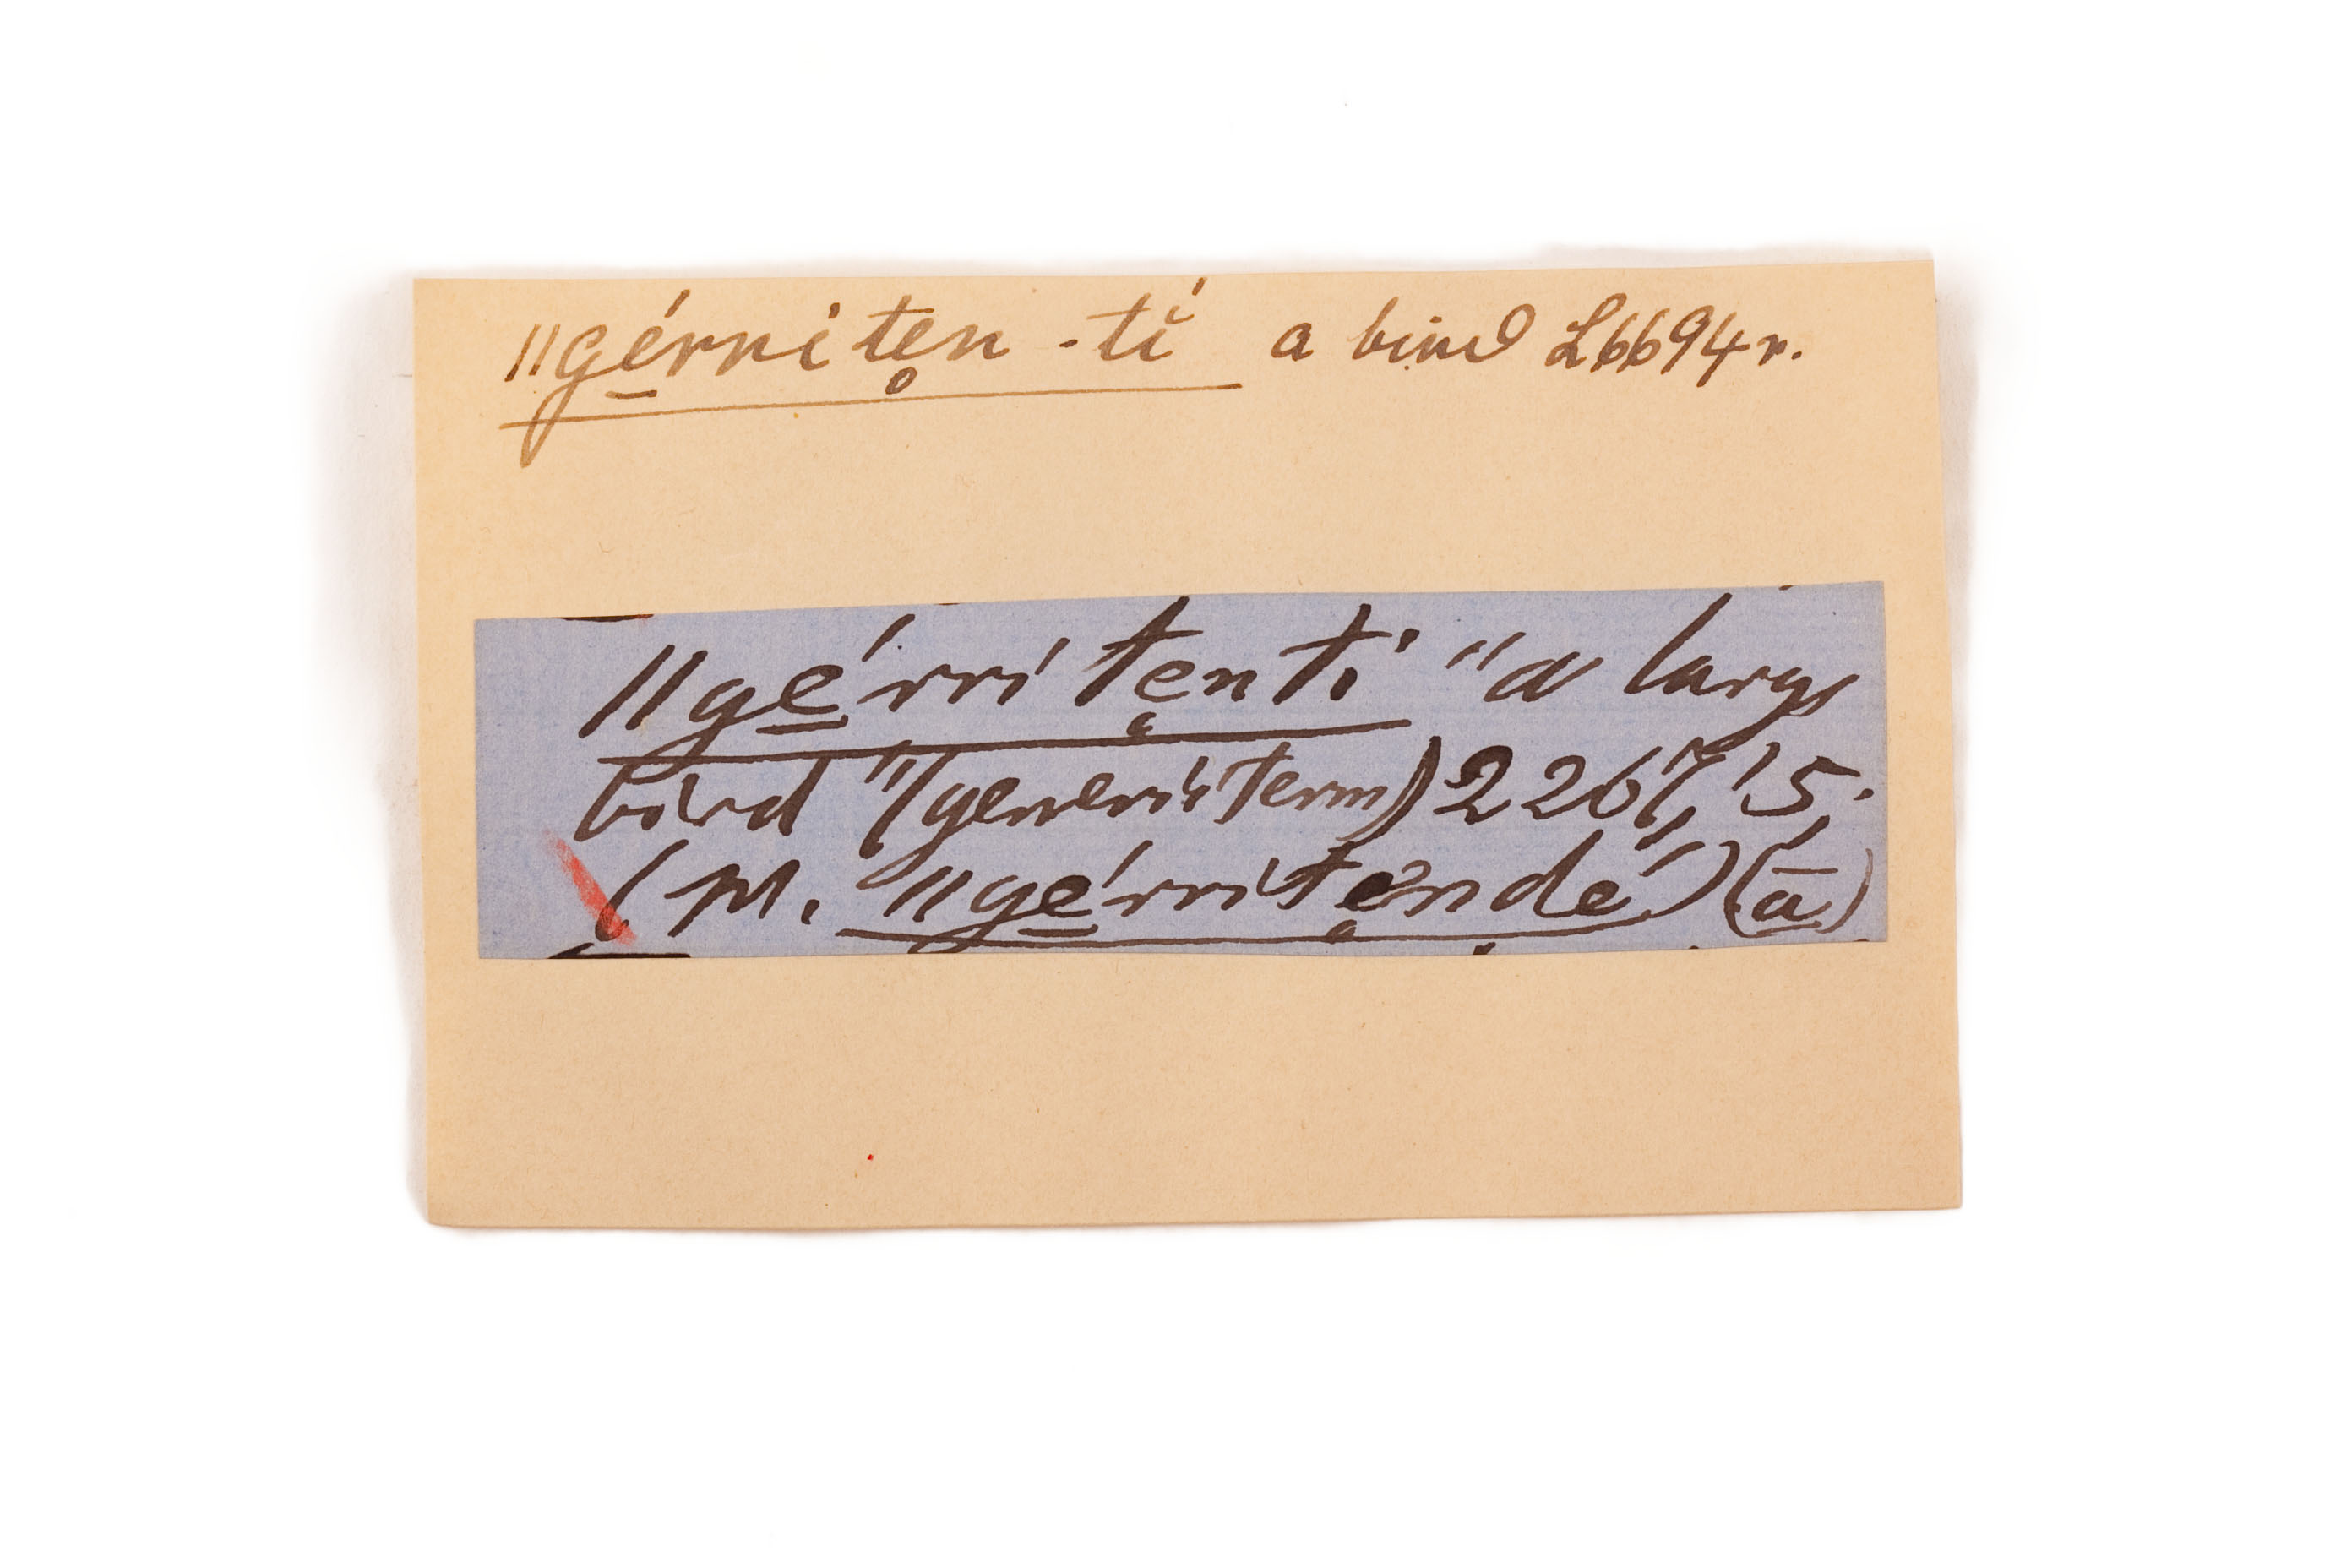 ǁgé̱rriten̥ -tí a bird L6694r.
ǁgé̱rrite̥ntí "a large
bird" (generic term) 2267, 15.
(pl. ǁgé̱rrite̥ndé) (ā̱́)